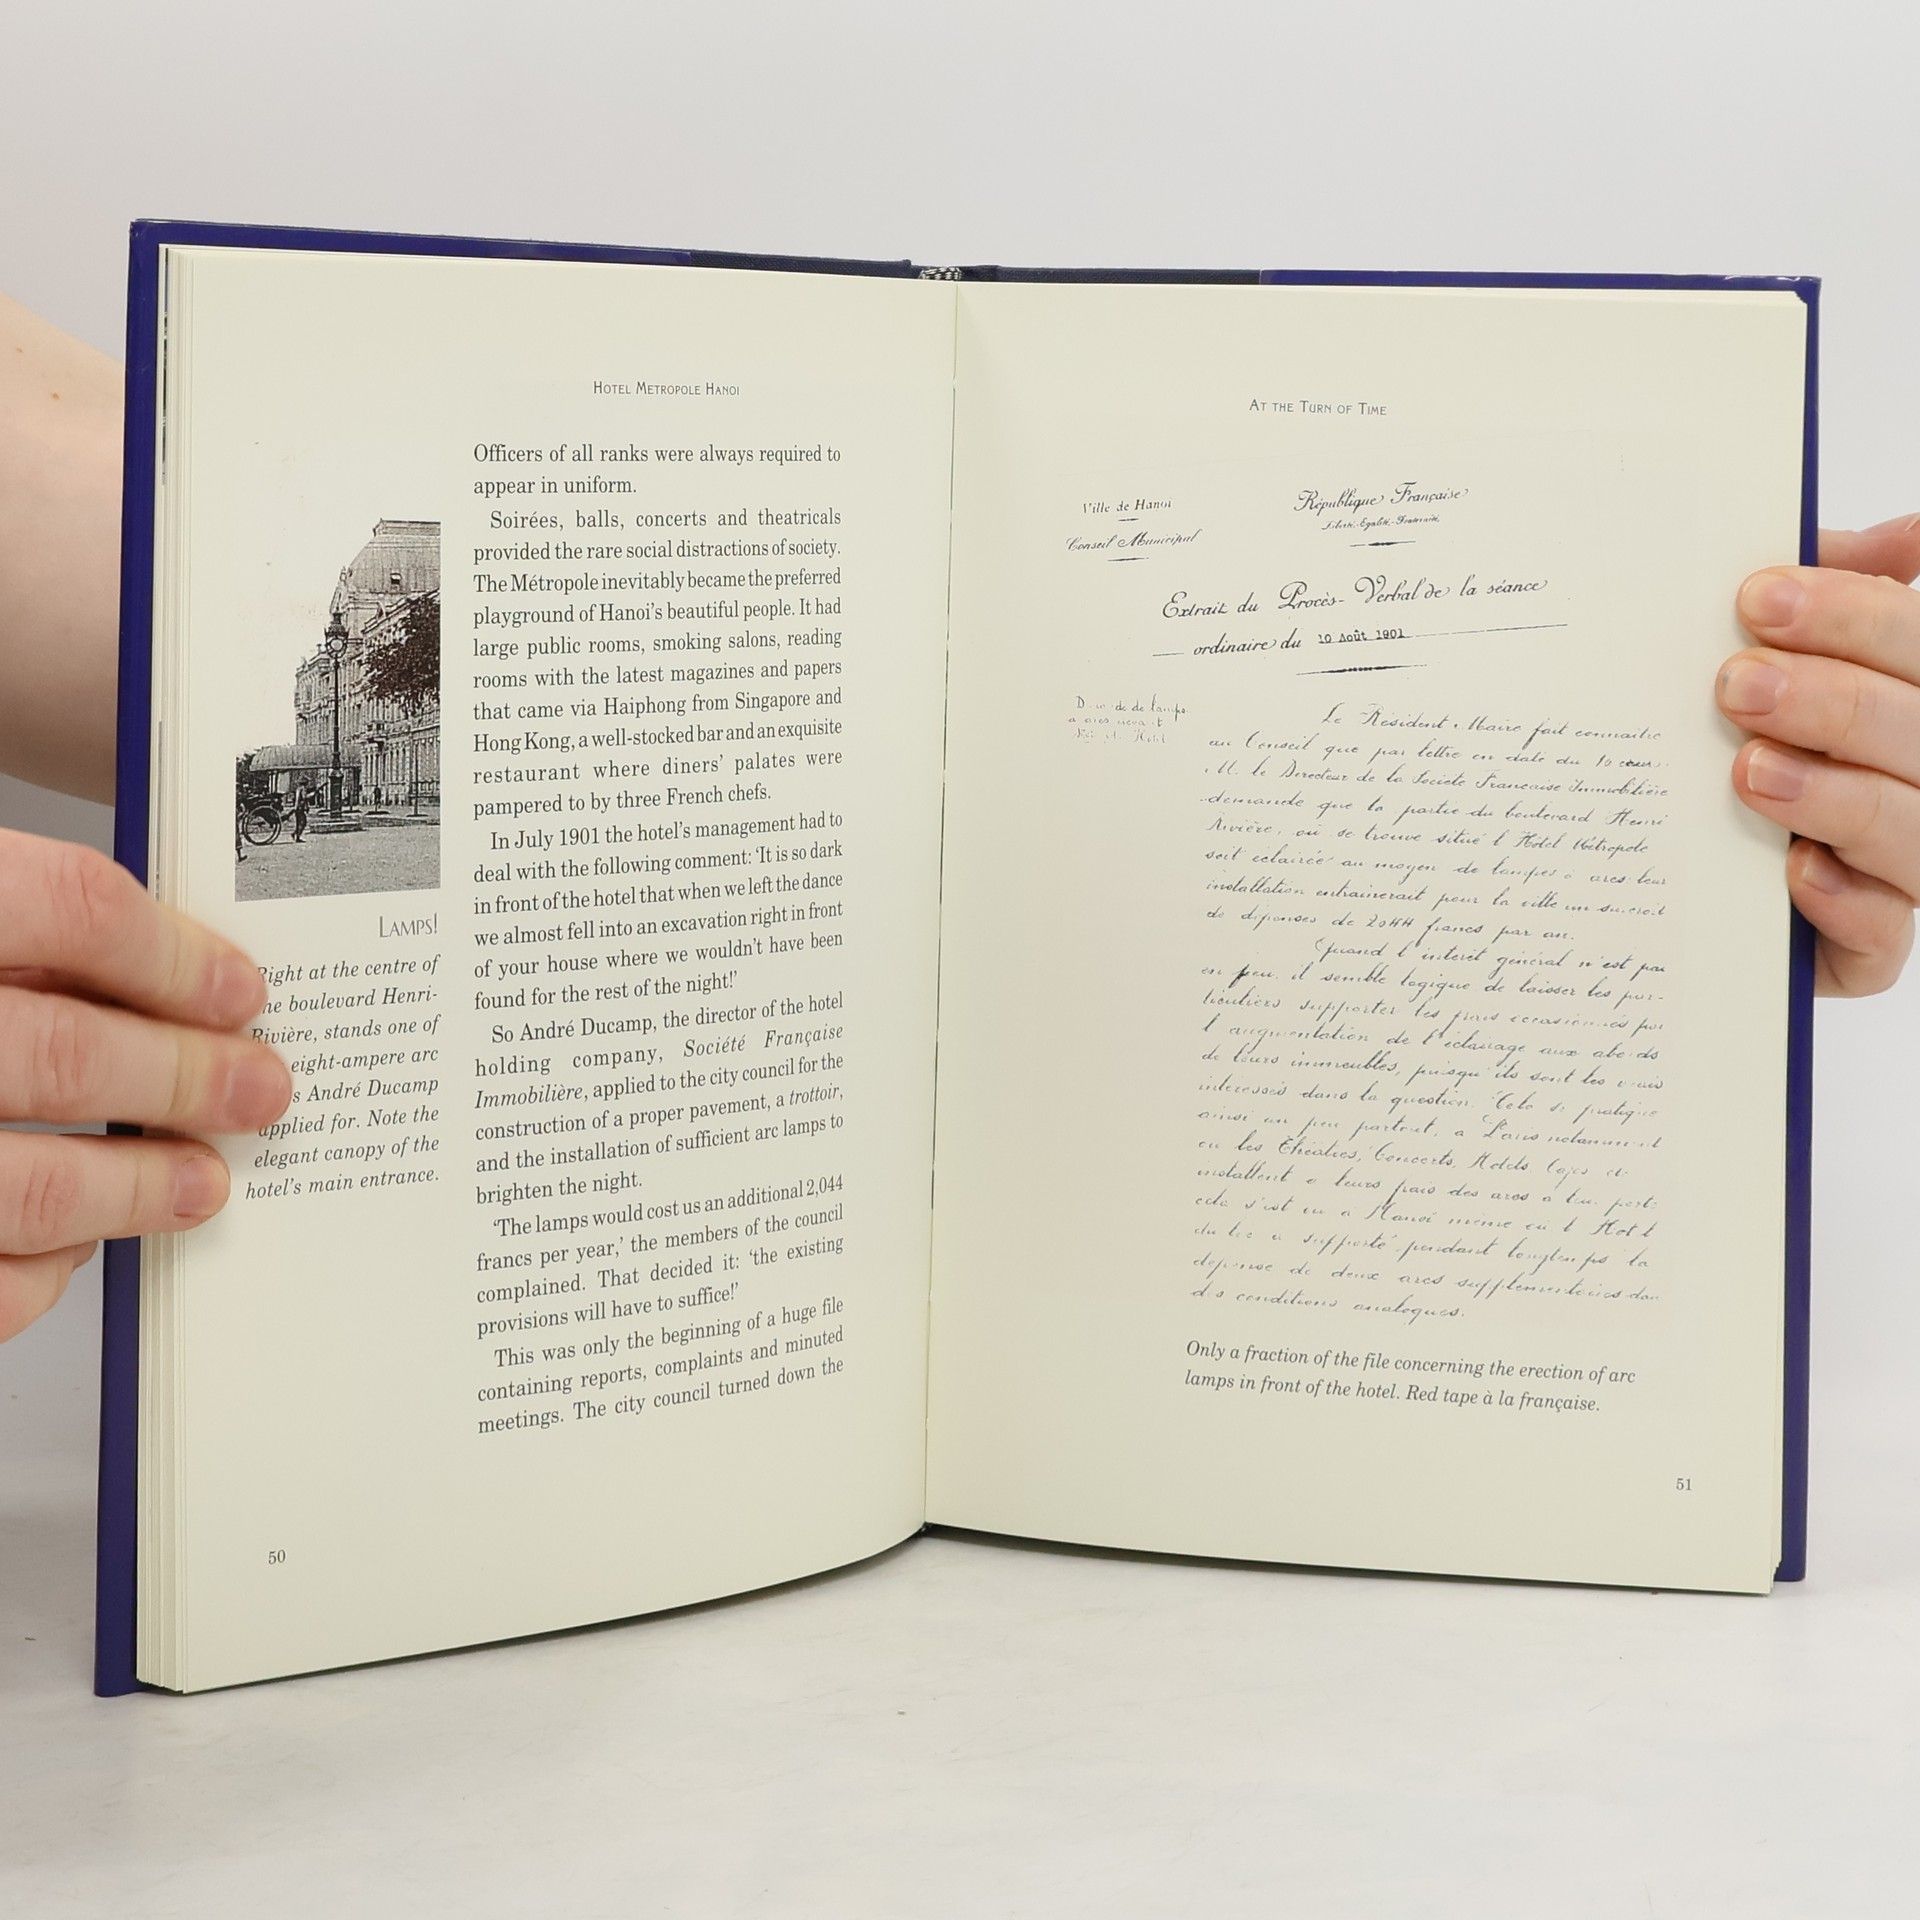 HOTEL METROPOLE HANOI
Officers of all ranks were always required to
appear in uniform.
Soirées, balls, concerts and theatricals
provided the rare social distractions of society.
The Métropole inevitably became the preferred
playground of Hanoi's beautiful people. It had
large public rooms, smoking salons, reading
rooms with the latest magazines and papers
that came via Haiphong from Singapore and
Hong Kong, a well-stocked bar and an exquisite
restaurant where diners' palates were
pampered to by three French chefs.
In July 1901 the hotel's management had to
deal with the following comment: 'It is so dark
in front of the hotel that when we left the dance
we almost fell into an excavation right in front
of your house where we wouldn't have been
found for the rest of the night!'
So André Ducamp, the director of the hotel
holding company, Société Française
Immobilière, applied to the city council for the
construction of a proper pavement, a trottoir,
and the installation of sufficient arc lamps to
brighten the night.
'The lamps would cost us an additional 2,044
francs per year,' the members of the council
complained. That decided it: 'the existing
provisions will have to suffice!'
This was only the beginning of a huge file
containing reports, complaints and minuted
meetings. The city council turned down the
LAMPS!
Right at the centre of
he boulevard Henri-
Rivière, stands one of
eight-ampere arc
s André Ducamp
applied for. Note the
elegant canopy of the
hotel's main entrance.
50
AT THE TURN OF TIME
Ville de Hanoi
Conseil Municipal
République Française
Liberté-Egalité-Fraternité
Extrait du Procès-Verbal de la séance
ordinaire du 10 Août 1901
de lamps
Hotel
Le Résident Maire fait connaitre
au Conseil que par lettre en date du 10
M. le Directeur de la Société Française Immobilière
demande que la partie du boulevard Henri
Rivière, où se trouve situé l'Hôtel Métropole
soit éclairée au moyen de lampes à arcs leur
installation entrainerait pour la ville un surcroit
de dépenses de 2044 francs par an.
Quand l'interêt général n'est pas
en jeu, il semble logique de laisser les par-
ticuliers supporter les frais occasionnés par
l'augmentation de l'éclairage aux abords
de leurs immeubles, puisqu'ils sont les vrais
intéressés dans la question. Cela se pratique
ainsi un peu partout, a Paris notamment
ou les Théatres, Concerts, Hotels, Cafés
installent a leurs frais des arcs a leur porte
cela s'est vu a Hanoi même où l'Hotel
du lac a supporté pendant longtemps la
dépense de deux arcs supplémentaires dans
des conditions analogues.
Only a fraction of the file concerning the erection of arc
lamps in front of the hotel. Red tape à la française.
51